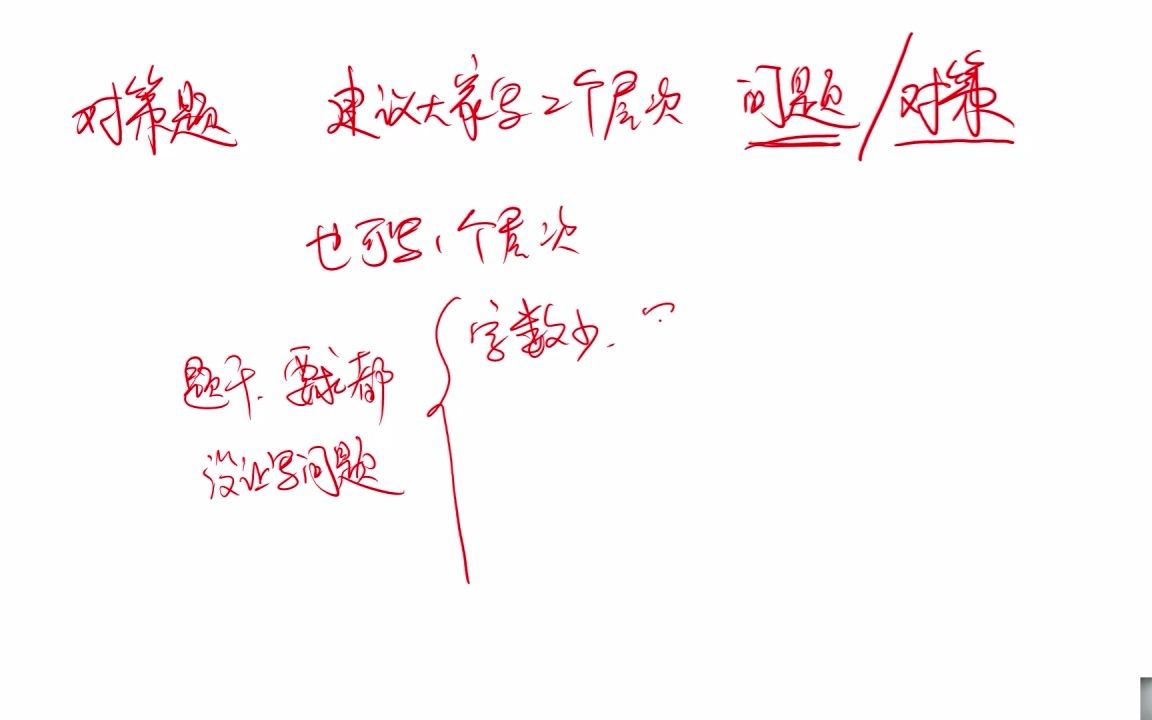 对策题 建议大家写2个层次 问题/对策
也可写1个层次
字数少.
题干.要求都
没让写问题